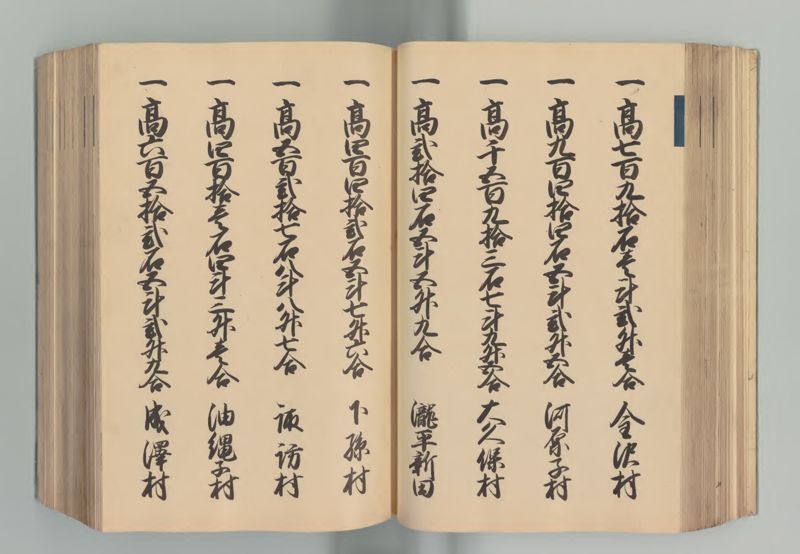 一 高七百九拾石壱斗弐升壱合 金沢村
一 高九百四拾四石五斗弐升五合 河原子村
一 高千五百九拾三石七斗九升五合 大久保村
一 高弐拾四石五斗五升九合 瀧平新田
一 高四百四拾弐石五斗七升六合 下孫村
一 高五百弐拾七石八斗八升七合 諏訪村
一 高四百拾壱石四斗三升壱合 油縄子村
一 高六百五拾弐石五斗弐升九合 成澤村